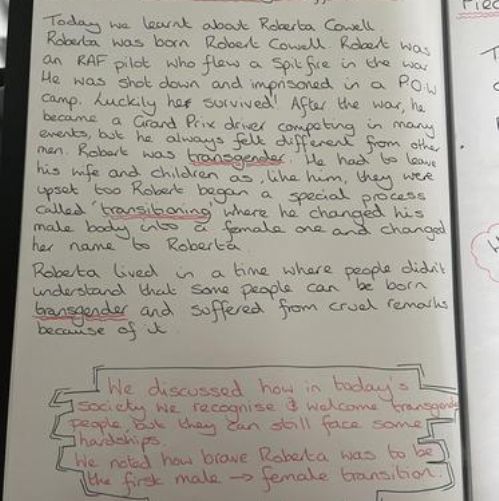 Today we learnt about Roberta Cowell.
Roberta was born Robert Cowell. Robert was
an RAF pilot who flew a Spitfire in the war
He was shot down and imprisoned in a P.O.W
camp. Luckily he survived! After the war, he
became a Grand Prix driver competing in many
events, but he always felt different from other
men. Robert was transgender. He had to leave
his wife and children as, like him, they were
upset too Robert began a special process
called 'transitioning' where he changed his
male body into a female one and changed
her name to Roberta.
Roberta lived in a time where people didn't
understand that some people can be born
transgender and suffered from cruel remarks
because of it
We discussed how in today's
society we recognise & welcome transgende
people, but they can still face some
hardships.
We noted how brave Roberta was to be
the first male → female transition.